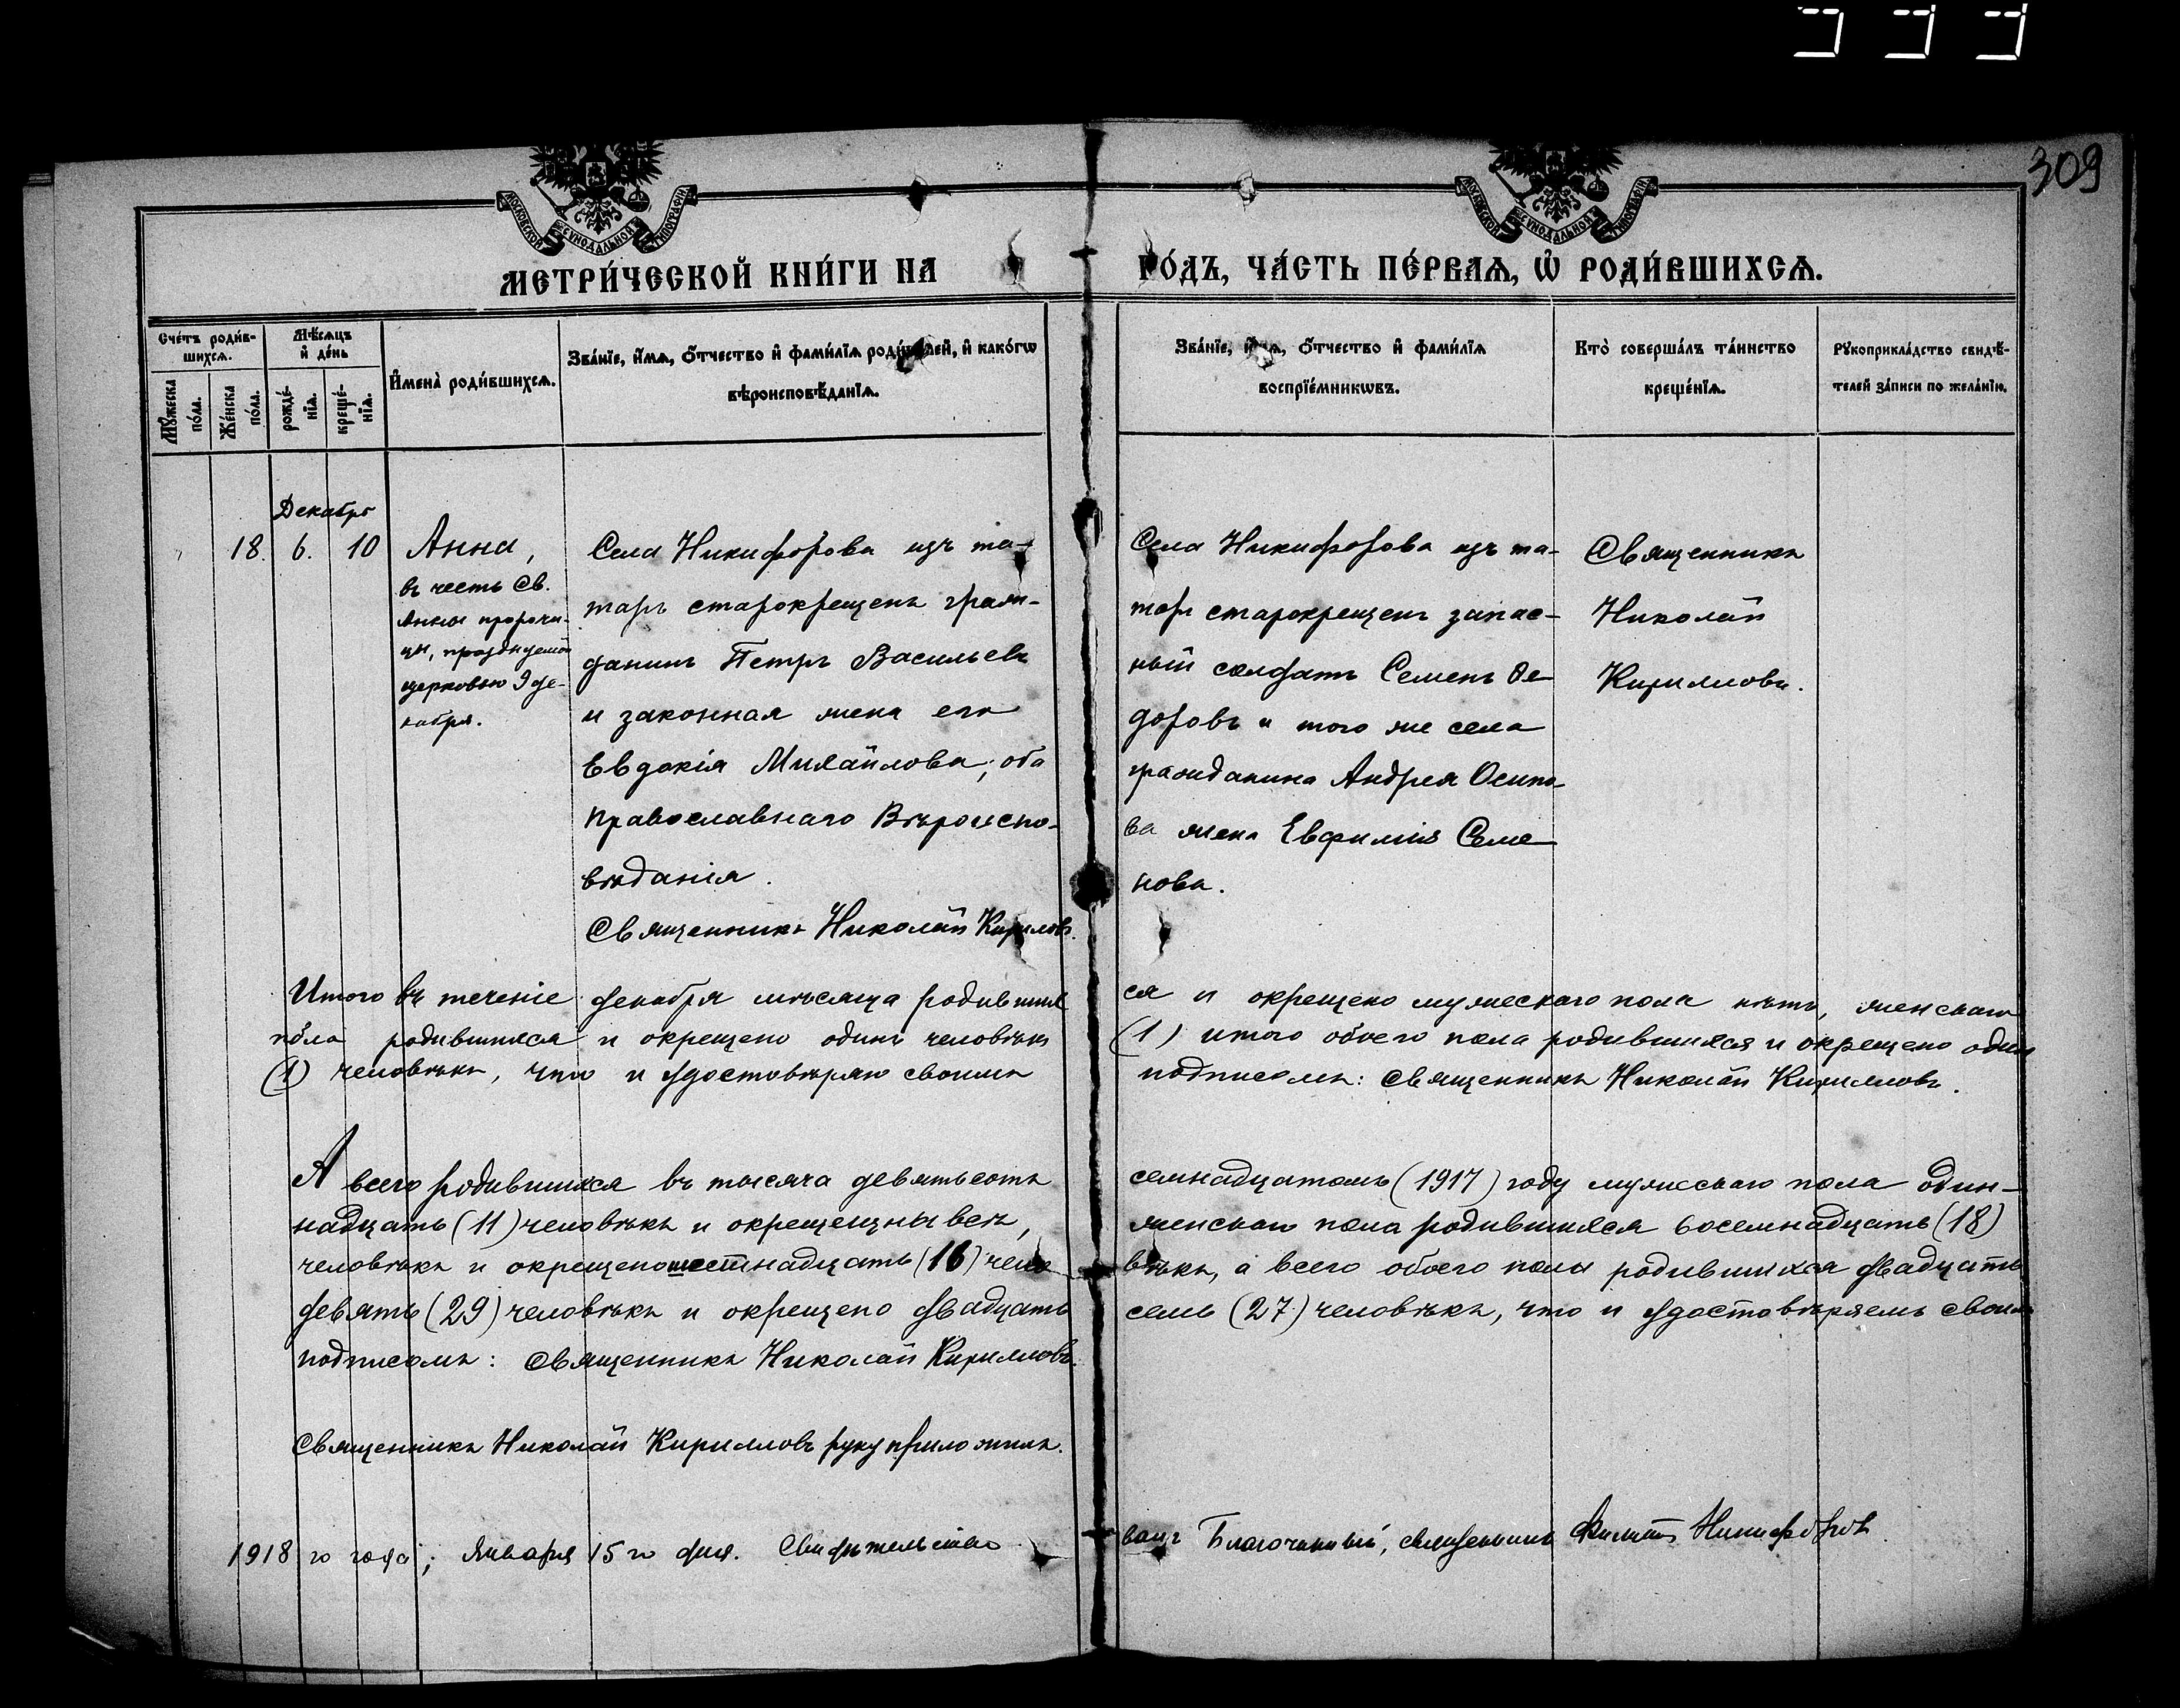 309
МОСКОВСКОЙ СУНОДАЛЬНОЙ ТИПОГРАФІИ
МОСКОВСКОЙ СУНОДАЛЬНОЙ ТИПОГРАФІИ
МЕТРИ́ЧЕСКОЙ КНИ́ГИ НА ГО́ДЪ, ЧА́СТЬ ПЕ́РВАѦ, Ѡ҆ РОДИ́ВШИХСѦ.
Сче́тъ роди́в-
шихсѧ.
Мꙋ́жеска по́ла.
Же́нска по́ла.
Мѣ́сѧцъ
и҆ де́нь
рожде́-
нїѧ.
креще́-
нїѧ.
И҆мена̀ роди́вшихсѧ.
Зва́нїе, и҆́мѧ, ѻ҆́тчество и҆ фами́лїѧ роди́телей, и҆ како́гѡ
вѣроисповѣ́данїѧ.
Зва́нїе, и҆́мѧ, ѻ҆́тчество и҆ фами́лїѧ
воспрїе́мникѡвъ.
Кто̀ соверша́лъ та́инство
креще́нїѧ.
Рꙋкоприкла́дство свидѣ́-
телей за́писи по жела́нїю.
Декабрь
18. 6. 10
Анна,
въ честь Св.
Анны пророчи-
цы, празднуемой
церковью 9 де-
кабря.
Села Никифорова изъ та-
таръ старокрещенъ граж-
данинъ Петръ Васильевъ
и законная жена его
Евдокія Михайлова, оба
Православнаго Вѣроиспо-
вѣданія.
Священникъ Николай Кириловъ.
Села Никифорова изъ та-
таръ старокрещенъ запас-
ный солдатъ Семенъ Ѳе-
доровъ и того же села
гражданина Андрея Осипо-
ва жена Евфимія Семе-
нова.
Священникъ
Николай
Кирилловъ.
Итого въ теченіе декабря мѣсяца родивших ся и окрещено мужескаго пола нѣтъ, женскаго
пола родившихся и окрещено одинъ человѣкъ (1) итого обоего пола родившихся и окрещено одинъ
(1) человѣкъ, что и удостовѣряю своимъ подписомъ: Священникъ Николай Кирилловъ.
А всего родившихся въ тысяча девятьсотъ семнадцатомъ (1917) году мужескаго пола один-
надцать (11) человѣкъ и окрещены всѣ, женскаго пола родившихся восемнадцать (18)
человѣкъ и окрещено шестнадцать (16) чело вѣкъ, а всего обоего пола родившихся двадцать
девять (29) человѣкъ и окрещено двадцать семь (27) человѣкъ, что и удостовѣряемъ своимъ
подписомъ: Священникъ Николай Кирилловъ.
Священникъ Николай Кирилловъ руку приложилъ.
1918 го года; Января 15 го дня. Свидѣтельство валъ Благочинный, священникъ Филиппъ Никифоровъ